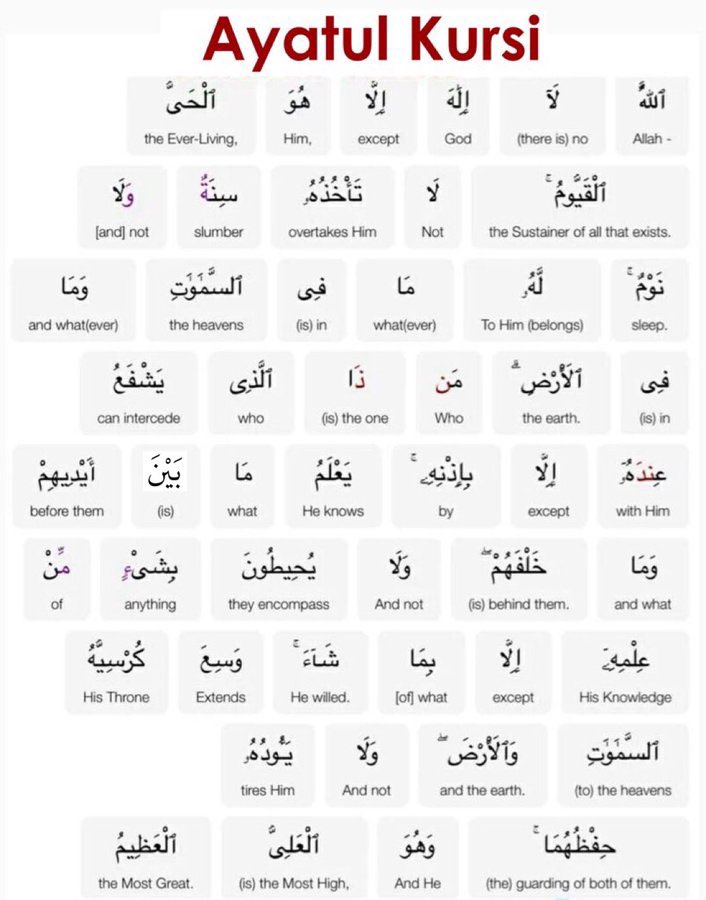 Ayatul Kursi
ٱللَّهُ لَآ إِلَٰهَ إِلَّا هُوَ ٱلْحَىُّ
Allah - (there is) no God except Him, the Ever-Living,
ٱلْقَيُّومُ ۚ لَا تَأْخُذُهُۥ سِنَةٌ وَلَا
the Sustainer of all that exists. Not overtakes Him slumber [and] not
نَوْمٌ ۚ لَّهُۥ مَا فِى ٱلسَّمَٰوَٰتِ وَمَا
sleep. To Him (belongs) what(ever) (is) in the heavens and what(ever)
فِى ٱلْأَرْضِ ۗ مَن ذَا ٱلَّذِى يَشْفَعُ
(is) in the earth. Who (is) the one who can intercede
عِندَهُۥٓ إِلَّا بِإِذْنِهِۦ ۚ يَعْلَمُ مَا بَيْنَ أَيْدِيهِمْ
with Him except by He knows what (is) before them
وَمَا خَلْفَهُمْ ۖ وَلَا يُحِيطُونَ بِشَىْءٍ مِّنْ
and what (is) behind them. And not they encompass anything of
عِلْمِهِۦٓ إِلَّا بِمَا شَآءَ ۚ وَسِعَ كُرْسِيُّهُ
His Knowledge except [of] what He willed. Extends His Throne
ٱلسَّمَٰوَٰتِ وَٱلْأَرْضَ ۖ وَلَا يَـُٔودُهُۥ
(to) the heavens and the earth. And not tires Him
حِفْظُهُمَا ۚ وَهُوَ ٱلْعَلِىُّ ٱلْعَظِيمُ
(the) guarding of both of them. And He (is) the Most High, the Most Great.